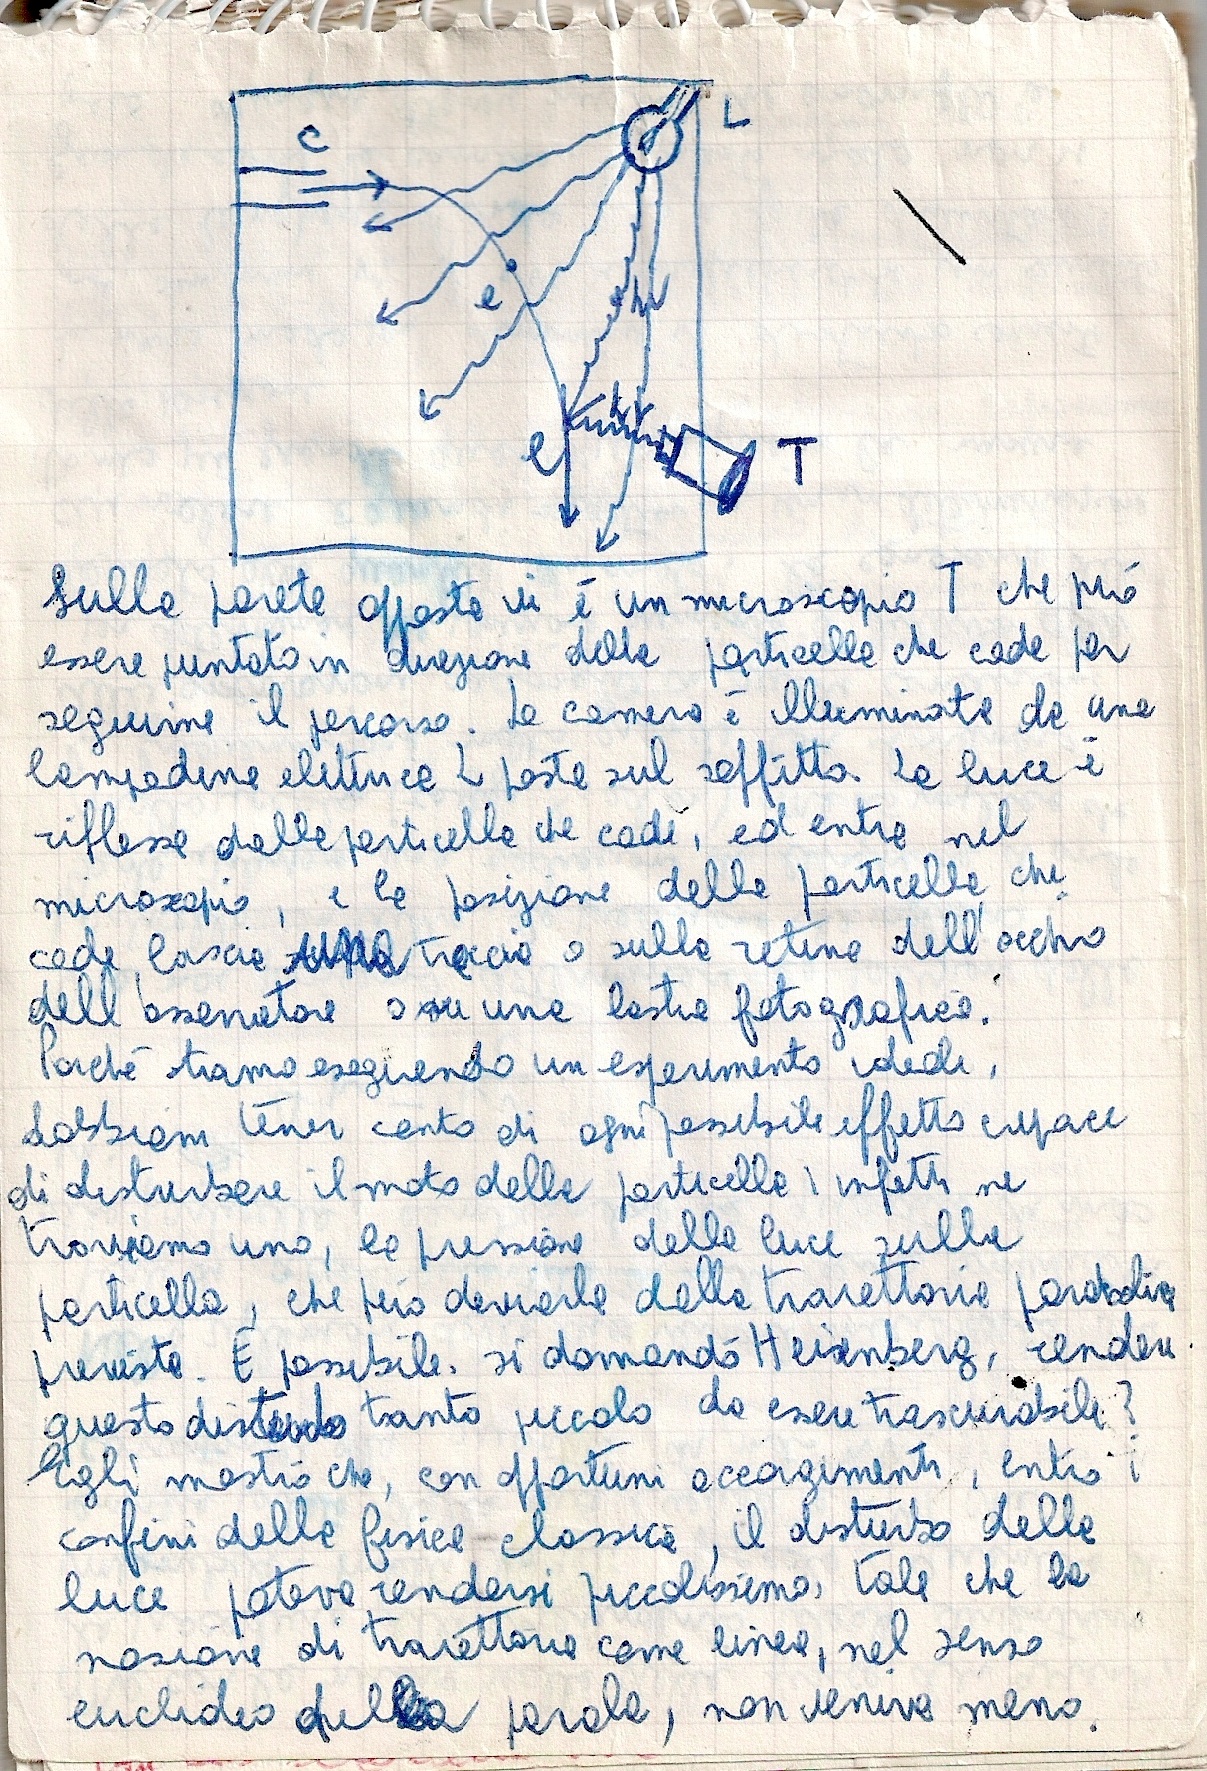 C
L
e
T
e
Sulla parete opposta vi è un microscopio T che può
essere puntato in direzione della particella che cade per
seguirne il percorso. La camera è illuminata da una
lampadina elettrica L posta sul soffitto. La luce è
riflessa dalla particella che cade, ed entra nel
microscopio, e la posizione della particella che
cade lascia una traccia o sulla retina dell'occhio
dell'osservatore o su una lastra fotografica.
Poiché stiamo eseguendo un esperimento ideale,
dobbiamo tener conto di ogni possibile effetto capace
di disturbare il moto della particella; infatti ne
troviamo uno, la pressione della luce sulla
particella, che può deviarla dalla traiettoria parabolica
prevista. È possibile, si domandò Heisenberg, rendere
questo disturbo tanto piccolo da essere trascurabile?
Egli mostrò che, con opportuni accorgimenti, entro i
confini della fisica classica, il disturbo della
luce poteva rendersi piccolissimo, tale che la
nozione di traiettoria come linea, nel senso
euclideo della parola, non veniva meno.